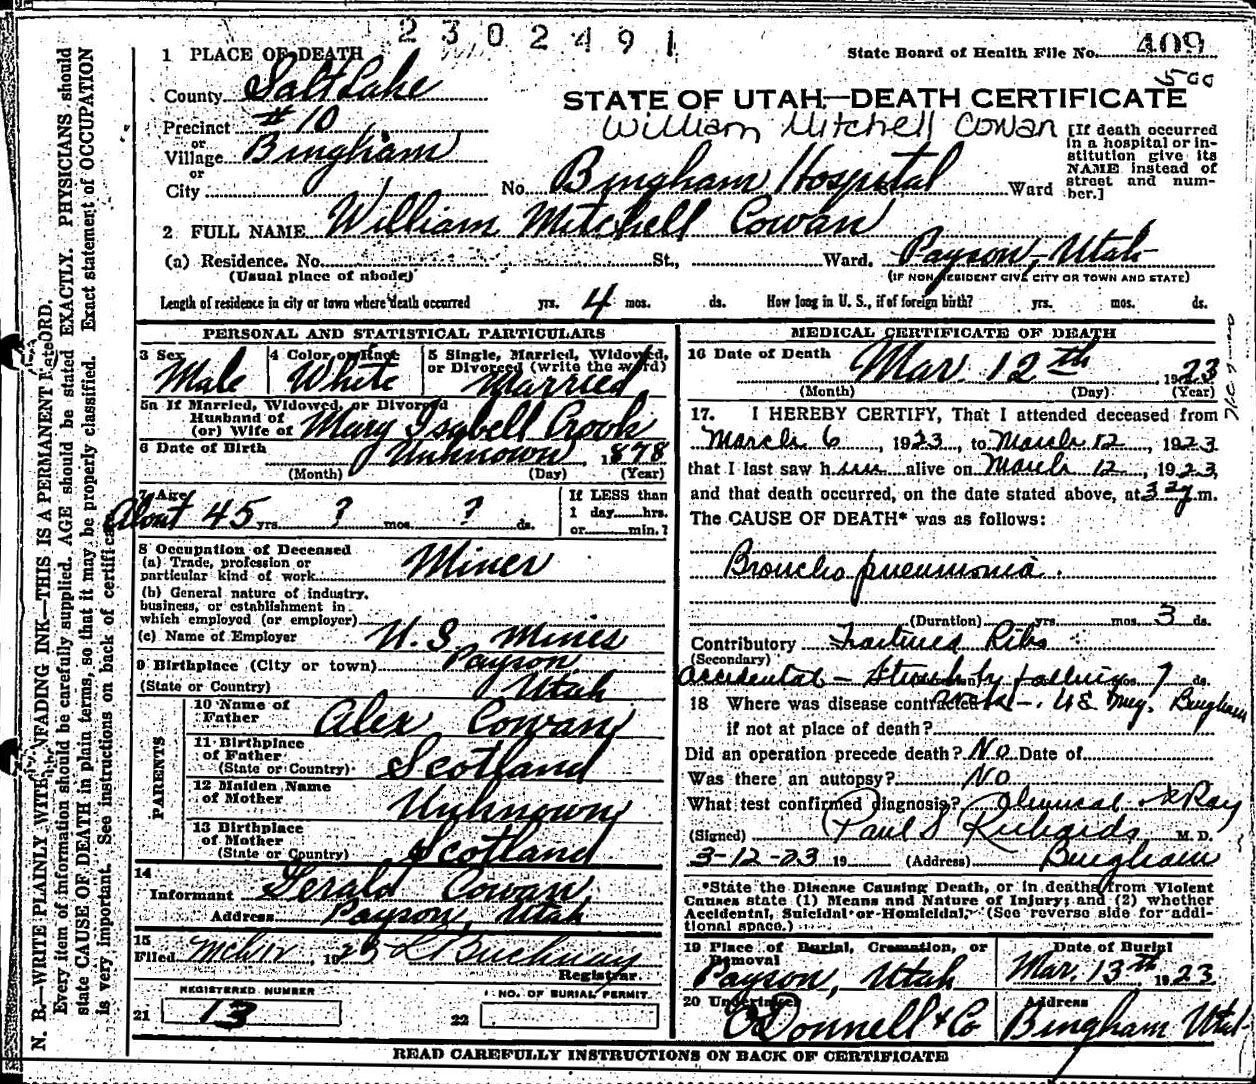 2302491
1 PLACE OF DEATH
State Board of Health File No. 409
500
County Salt Lake
STATE OF UTAH—DEATH CERTIFICATE
Precinct #10
William Mitchell Cowan
or
Village Bingham
or
City
No. Bingham Hospital St., Ward
[If death occurred
in a hospital or in-
stitution give its
NAME instead of
street and num-
ber.]
2 FULL NAME William Mitchell Cowan
(a) Residence. No. St., Ward. Payson, Utah
(Usual place of abode)
(IF NON RESIDENT GIVE CITY OR TOWN AND STATE)
Length of residence in city or town where death occurred yrs. 4 mos. ds. How long in U. S., if of foreign birth? yrs. mos. ds.
PERSONAL AND STATISTICAL PARTICULARS
3 Sex Male
4 Color or Race White
5 Single, Married, Widowed,
or Divorced (write the word)
Married
5a If Married, Widowed, or Divorced
Husband of
(or) Wife of Mary Isybell Crook
6 Date of Birth Unknown, 1878
(Month) (Day) (Year)
7 Age
About 45 yrs. ? mos. ? ds.
If LESS than
1 day hrs.
or min.?
8 Occupation of Deceased
(a) Trade, profession or
particular kind of work Miner
(b) General nature of industry,
business, or establishment in
which employed (or employer)
(c) Name of Employer U. S. Mines
9 Birthplace (City or town) Payson
(State or Country) Utah
PARENTS
10 Name of
Father Alex Cowan
11 Birthplace
of Father
(State or Country) Scotland
12 Maiden Name
of Mother Unknown
13 Birthplace
of Mother
(State or Country) Scotland
14
Informant Gerald Cowan
Address Payson, Utah
15
Filed 1923
Registrar
REGISTERED NUMBER
21 13
NO. OF BURIAL PERMIT
22
MEDICAL CERTIFICATE OF DEATH
16 Date of Death Mar. 12th 1923
(Month) (Day) (Year)
17. I HEREBY CERTIFY, That I attended deceased from
March 6, 1923, to March 12, 1923
that I last saw him alive on March 12, 1923,
and that death occurred, on the date stated above, at m.
The CAUSE OF DEATH* was as follows:
Broncho pneumonia.
(Duration) yrs. mos. 3 ds.
Contributory Fractured Ribs
(Secondary)
Accidental — Struck by falling 7 ds.
18 Where was disease contracted Bingham
if not at place of death?
Did an operation precede death? No Date of
Was there an autopsy? No
What test confirmed diagnosis? Clinical & X Ray
(Signed) Paul S Richards M. D.
3-12-23 19 (Address) Bingham
*State the Disease Causing Death, or in deaths from Violent
Causes state (1) Means and Nature of Injury; and (2) whether
Accidental, Suicidal or Homicidal. (See reverse side for addi-
tional space.)
19 Place of Burial, Cremation, or
Removal
Payson, Utah
Date of Burial
Mar. 13th 1923
20 Undertaker
O'Donnell & Co
Address
Bingham Utah
READ CAREFULLY INSTRUCTIONS ON BACK OF CERTIFICATE
N. B.—WRITE PLAINLY WITH UNFADING INK—THIS IS A PERMANENT RECORD.
Every item of information should be carefully supplied. AGE should be stated EXACTLY. PHYSICIANS should
state CAUSE OF DEATH in plain terms, so that it may be properly classified. Exact statement of OCCUPATION
is very important. See instructions on back of certificate.